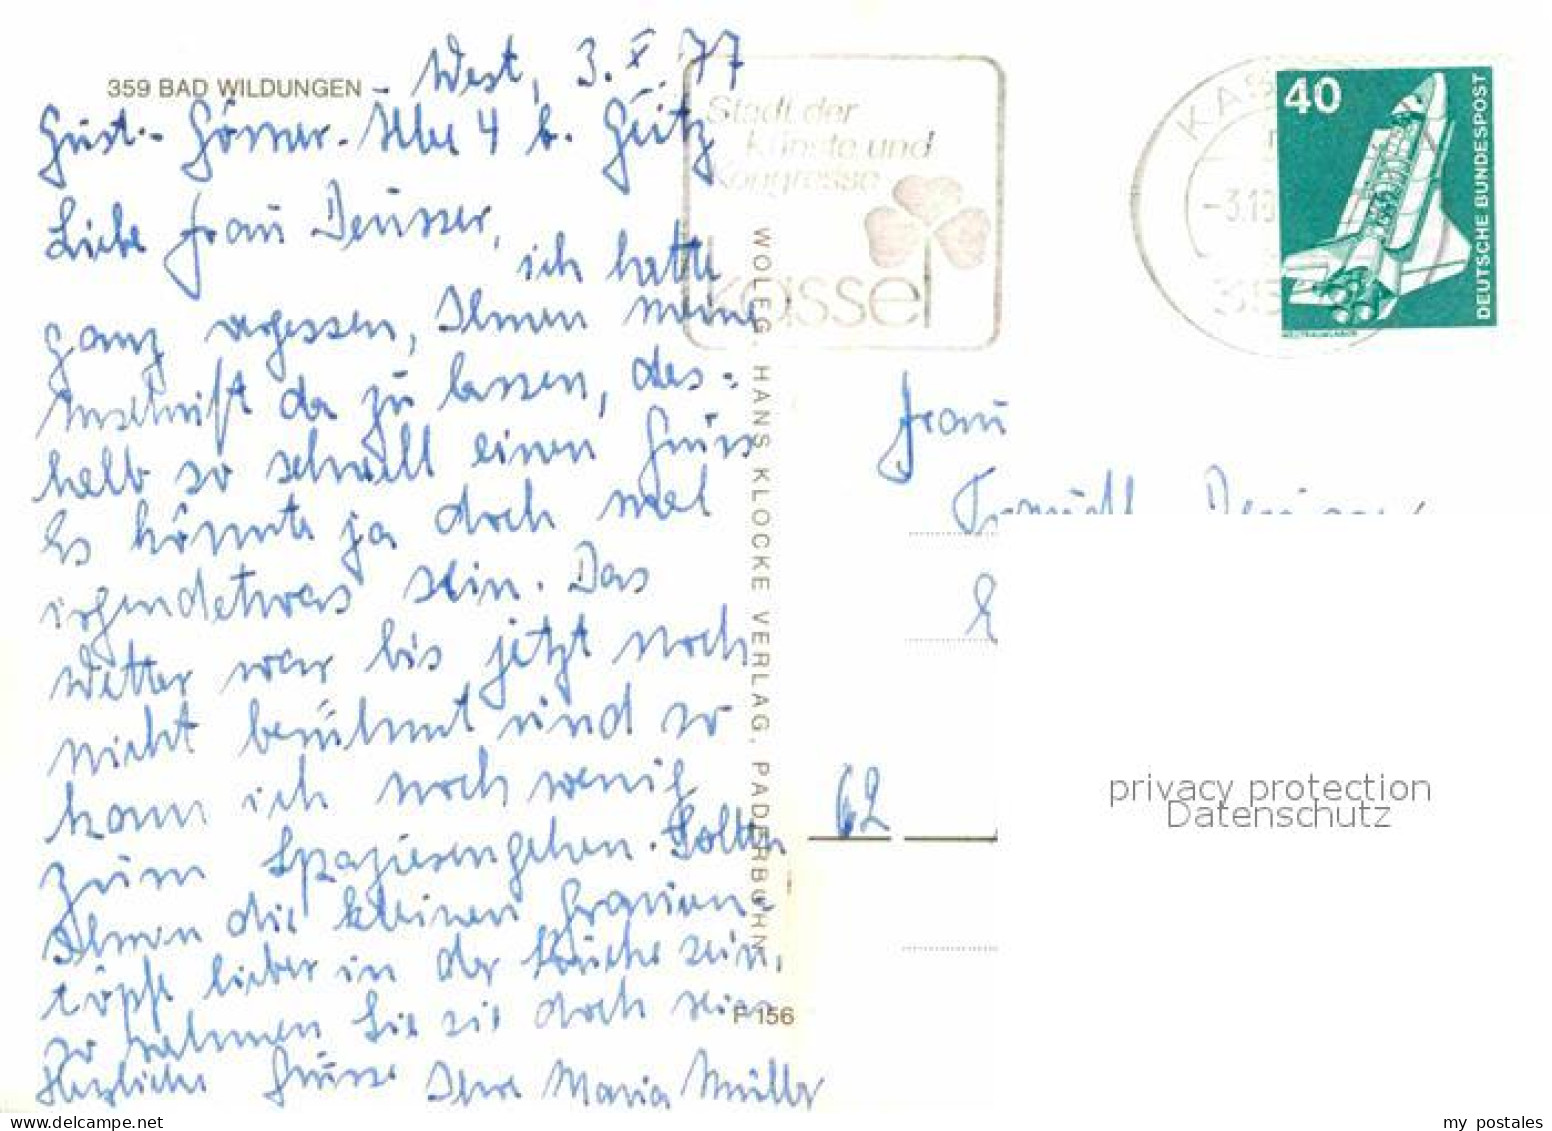 359 BAD WILDUNGEN - West, 3. X. 77
Gust.- Görner- Allee 4 b. Geitz
Liebe Frau Deusser,
ich hatte
ganz vergessen, Ihnen meine
Anschrift da zu lassen, des=
halb so schnell einen Gruss
Es könnte ja doch mal
irgendetwas sein. Das
Wetter war bis jetzt noch
nicht berühmt und so
kann ich noch wenig
zum Spazierengehen. Sollten
Ihnen die kleinen
töpfe lieber in der Küche sein,
so nehmen Sie sie doch
Herzliche Grüsse Ihre Maria Müller
WOLEG. HANS KLOCKE VERLAG, PADERBORN
F 156
Stadt der
Künste und
Kongresse
kassel
KAS
-3.10
40
DEUTSCHE BUNDESPOST
Frau
62
privacy protection
Datenschutz
my postales
www.delcampe.net